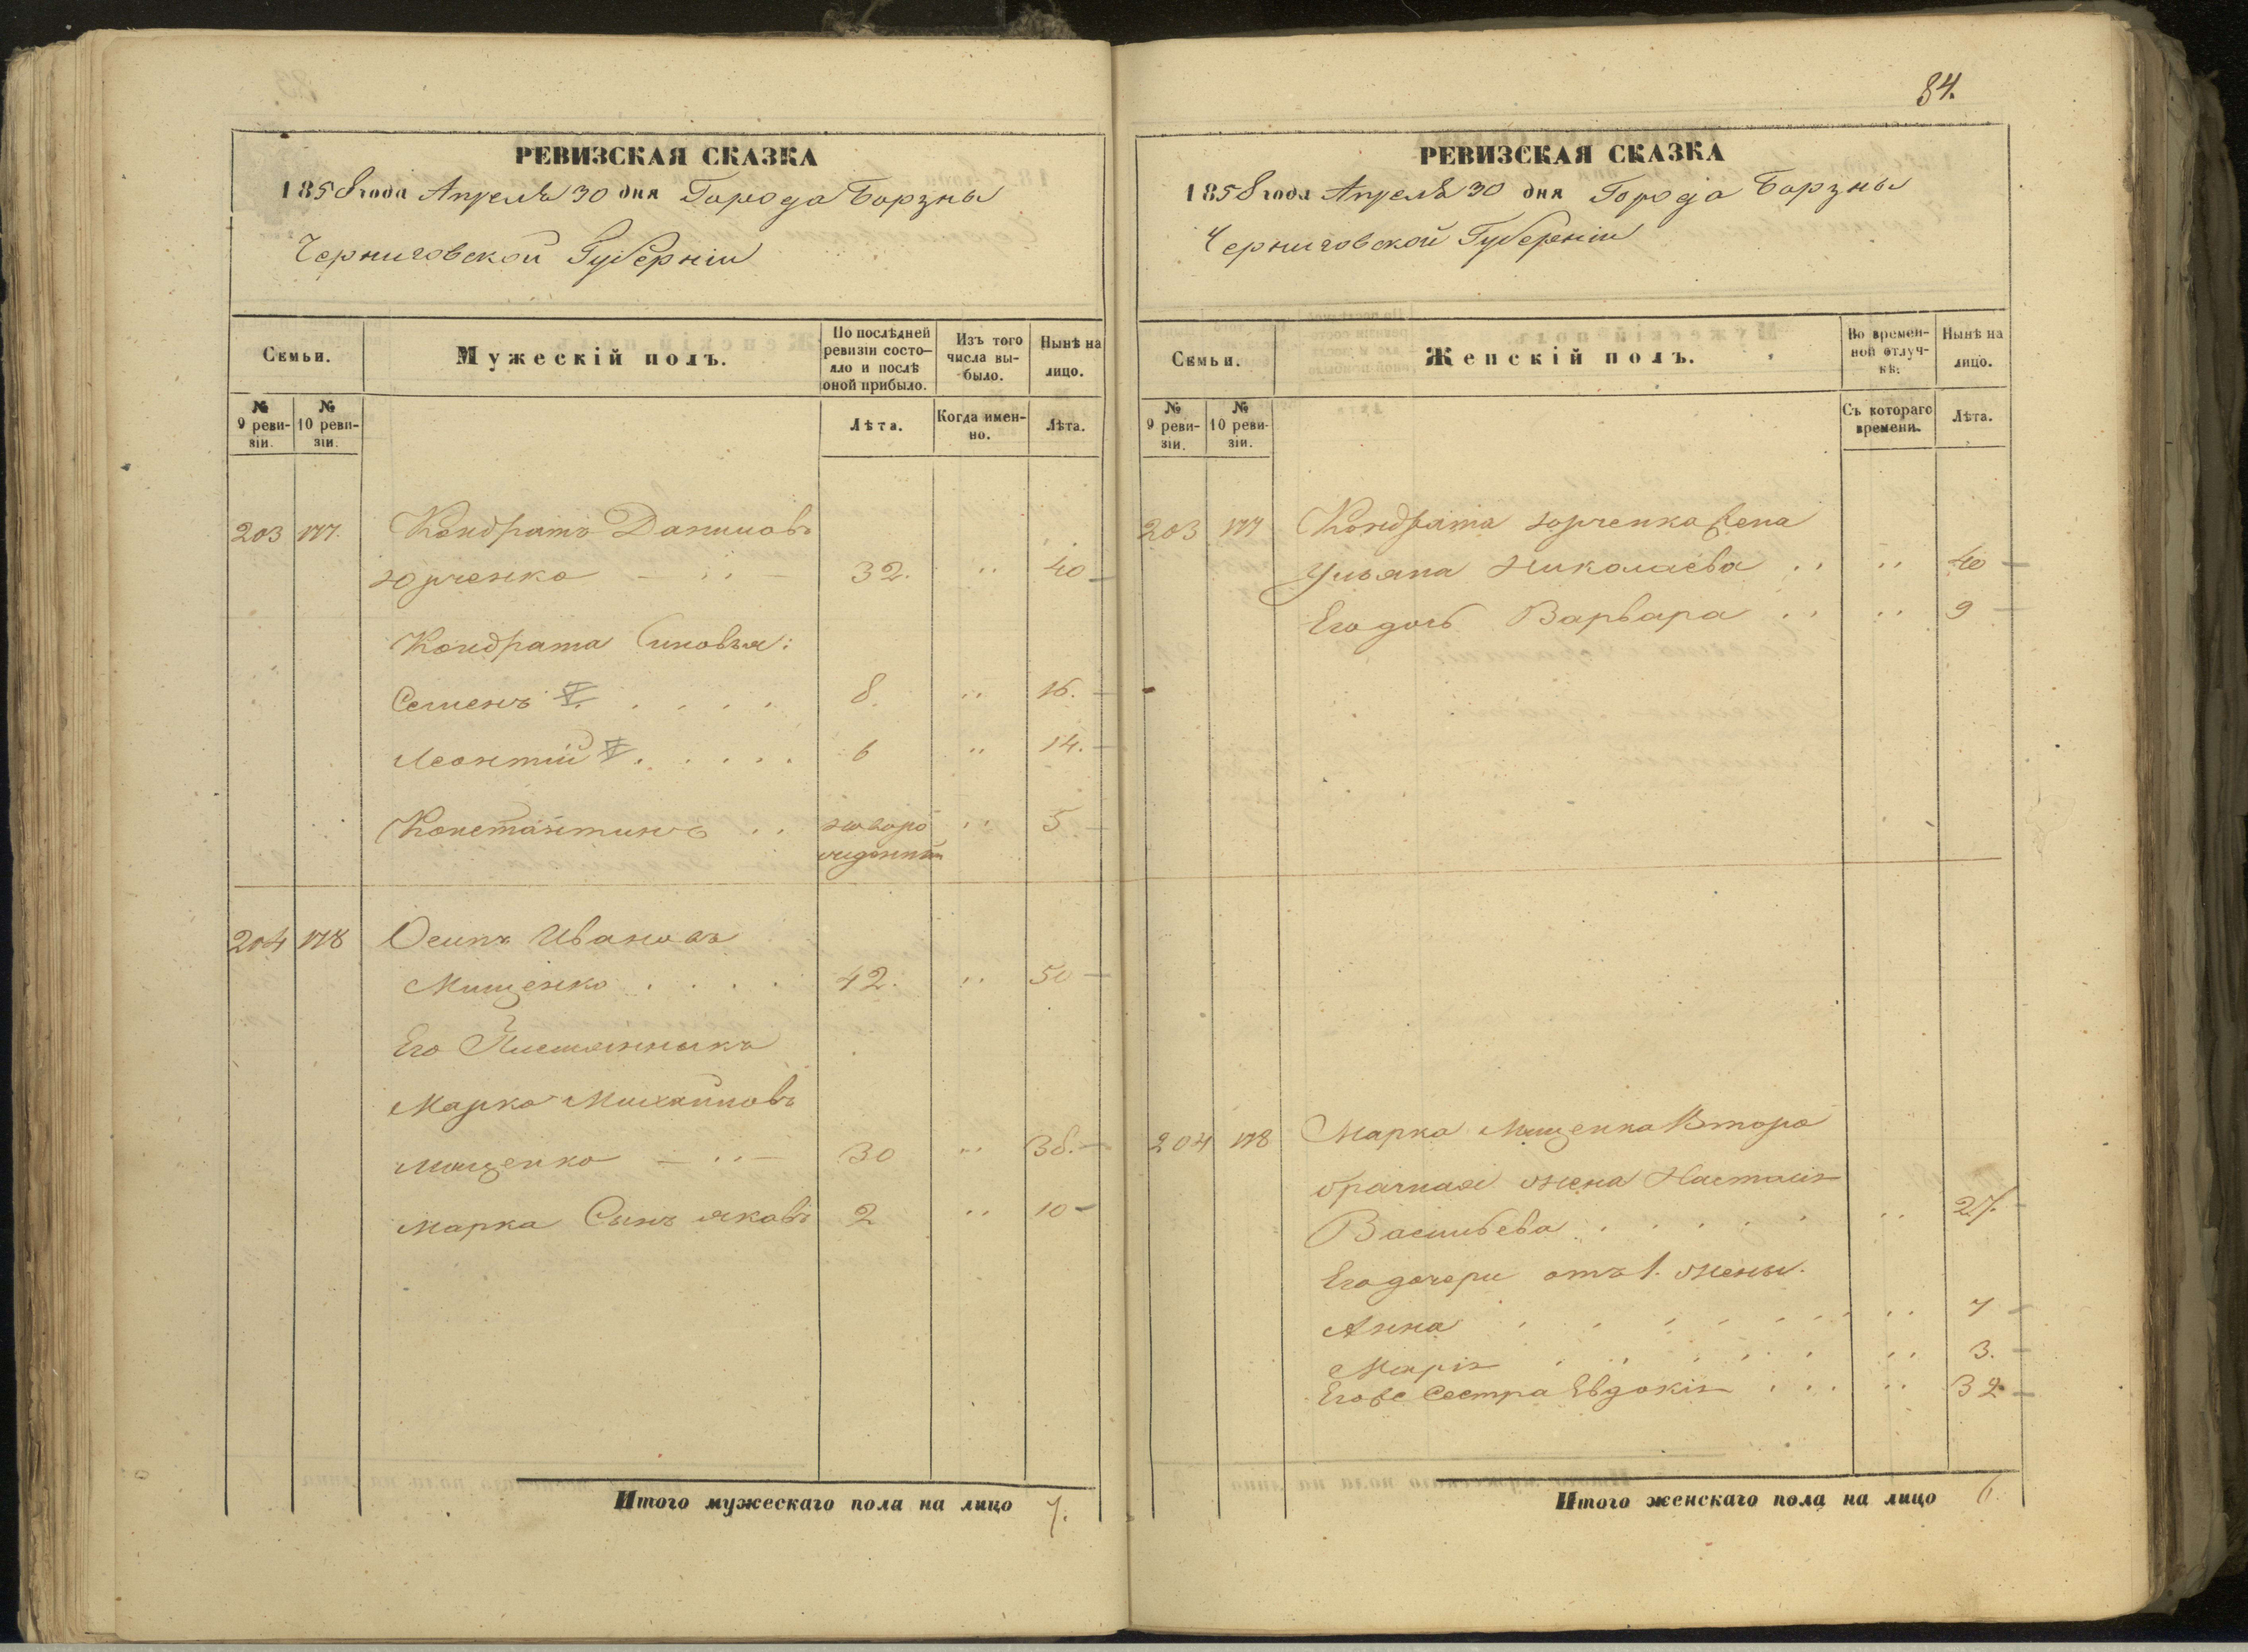 РЕВИЗСКАЯ СКАЗКА
1858 года Апреля 30 дня Города Борзны
Черниговской Губерніи
Семьи.
Мужескій полъ.
По послѣдней ревизіи состояло и послѣ оной прибыло.
Изъ того числа выбыло.
Нынѣ на лицо.
№ 9 ревизіи.
№ 10 ревизіи.
Лѣта.
Когда именно.
Лѣта.
203 177. Кондратъ Даниловъ
Юрченко 32. 40
Кондрата Сыновья:
Семенъ 8. 16.
Леонтій 6 14.
Константинъ новоро 5
204 178 Осипъ Ивановъ
Мищенко 42. 50
Его Племянникъ
Марко Михайловъ
Мищенко 30 38.
Марка Сынъ Яковъ 2 10
Итого мужескаго пола на лицо 7.
84.
РЕВИЗСКАЯ СКАЗКА
1858 года Апреля 30 дня Города Борзны
Черниговской Губерніи
Семьи.
Женскій полъ.
Во временной отлучкѣ.
Нынѣ на лицо.
№ 9 ревизіи.
№ 10 ревизіи.
Съ котораго времени.
Лѣта.
203 177 Кондрата Юрченка жена
Ульяна Николаева 40
Его дочь Варвара 9
204 178 Марка Мищенка Второ
брачная жена Настасія
Васильева 27.
Его дочери отъ 1. жены.
Анна 7
Марія 3.
Его же Сестра Евдокія 32
Итого женскаго пола на лицо 6.